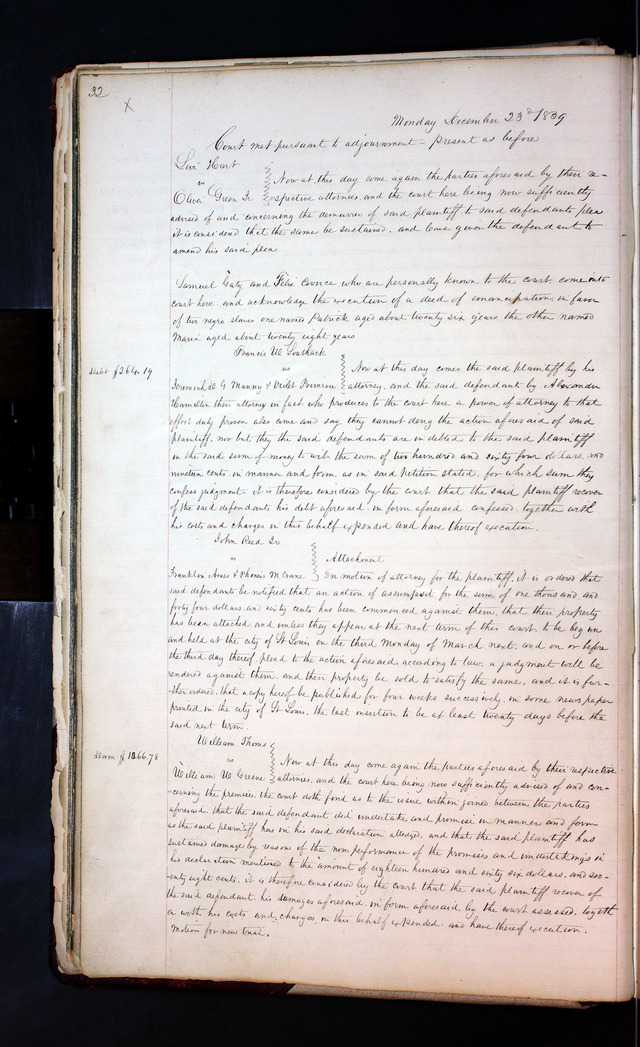 32
X
Monday December 23d 1839
Court met pursuant to adjournment = present as before
Levi Hart
vs
Now at this day come again the parties aforesaid by their re-
Oliver Green Jr spective attornies, and the court here being now sufficiently
advised of and concerning the demurrer of said plaintiff to said defendants plea
it is considered that the same be sustained, and leave given the defendant to
amend his said plea
Samuel Gaty and Felix who are personally known to the court, come into
court here and acknowledge the execution of a deed of emancipation in favor
of two negro slaves one named Patrick aged about twenty six years the other named
Maria aged about twenty eight years
Francis W. Southack
Debt $264.19
vs
Now at this day comes the said plaintiff by his
Jeremiah D. G. Manny & Violet Primrose attorney, and the said defendant by Alexander
Hamilton their attorney in fact who produces to the court here a power of attorney to that
effect duly proven also come and say they cannot deny the action aforesaid of said
plaintiff, nor but they the said defendants are indebted to the said plaintiff
in the said sum of money to wit the sum of two hundred and sixty four dollars and
nineteen cents in manner and form as in said petition stated, for which sum they
confess judgment. it is therefore considered by the court that the said plaintiff recover
of the said defendants his debt aforesaid in form aforesaid confessed together with
his costs and charges in this behalf expended and have thereof execution.
John Reed Jr
vs
Attachment
Franklin Ames & Thomas McCrane On motion of attorney for the plaintiff, it is ordered that
said defendants be notified that an action of assumpsit for the sum of one thousand and
forty four dollars and sixty cents has been commenced against them, that their property
has been attached and unless they appear at the next term of this court, to be begun
and held at the city of St Louis on the third Monday of March next. and on or before
the third day thereof, plead to the action aforesaid according to law, a judgment will be
rendered against them, and their property be sold to satisfy the same, and it is fur-
ther ordered, that a copy hereof be published for four weeks successively, in some newspaper
printed in the city of St Louis, the last insertion to be at least twenty days before the
said next term.
William Thoms
Dam $1866.78
vs
Now at this day come again the parties aforesaid by their respective
William W Greene attornies, and the court here being now sufficiently advised of and con-
-cerning the premises, the court doth find as to the issue within joined between the parties
aforesaid, that the said defendant did undertake and promise in manner and form
as the said plaintiff has in his said declaration alleged, and that the said plaintiff has
sustained damage by reason of the non performance of the promises and undertakings in
his declaration mentioned to the amount of eighteen hundred and sixty six dollars, and sev-
-enty eight cents. it is therefore considered by the court that the said plaintiff recover of
the said defendant, his damages aforesaid in form aforesaid by the court assessed, togeth
er with his costs and charges, in this behalf expended, and have thereof execution.
Motion for new trial.